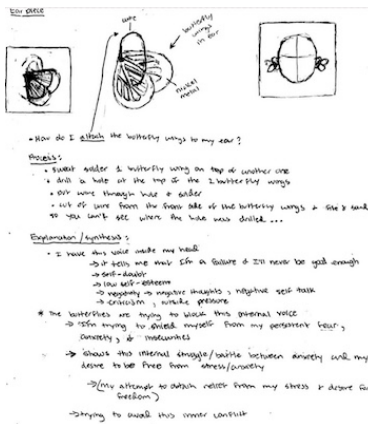 Ear piece
wire
butterfly
wings
in ear
nickel
metal
• How do I attach the butterfly wings to my ear?
Process:
• sweat solder 1 butterfly wing on top of another one
• drill a hole at the top of the 2 butterfly wings
• put wire through hole & solder
• cut off wire from the front side of the butterfly wings & file & sand
so you can't see where the hole was drilled...
Explanation / synthesis:
• I have this voice inside my head
→ it tells me that I'm a failure & I'll never be good enough
→ self-doubt
→ low self-esteem
→ negativity → negative thoughts, negative self talk
→ criticism, outside pressure
* The butterflies are trying to block this internal voice
→ I'm trying to shield myself from my persistent fear,
anxiety, & insecurities
→ shows this internal struggle/battle between anxiety and my
desire to be free from stress/anxiety
→ (my attempt to obtain relief from my stress & desire for
freedom)
→ trying to avoid this inner conflict